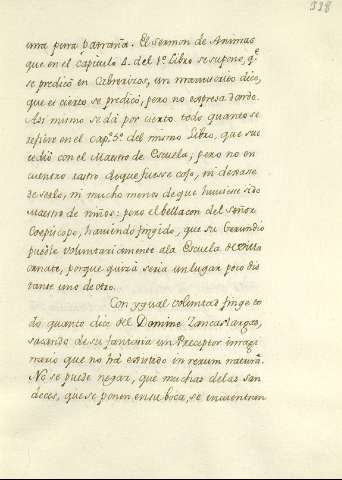 338
una pura patraña. El sermon de Animas
que en el capitulo 4. del 1º. Libro se supone, qe.
se predicò en Cabrerizos, un manuscrito dice,
que es cierto se predicò, pero no expresa donde.
Assi mismo se dà por cierto todo quanto se
refiere en el cap.º 5.º del mismo Libro, que suc
cediò con el Maestro de Escuela; pero no en
cuentro rastro de que fuesse cojo, ni dexasse
de serlo, ni mucho menos de que huviesse sido
Maestro de niños: pero el bellacon del señor
Coepiscopo, haviendo fingido, que su Gerundio
fuesse voluntariamente a la Escuela de Villa
ornate, porque quizà seria un lugar poco dis
tante uno de otro.
Con ygual voluntad finge to
do quanto dice del Domine Zancas-largas,
sacando de su fantasia un Preceptor imagi
nario que no hà existido in rerum natura.
No se puede negar, que muchas de las san
deces, que se ponen en su boca, se encuentran